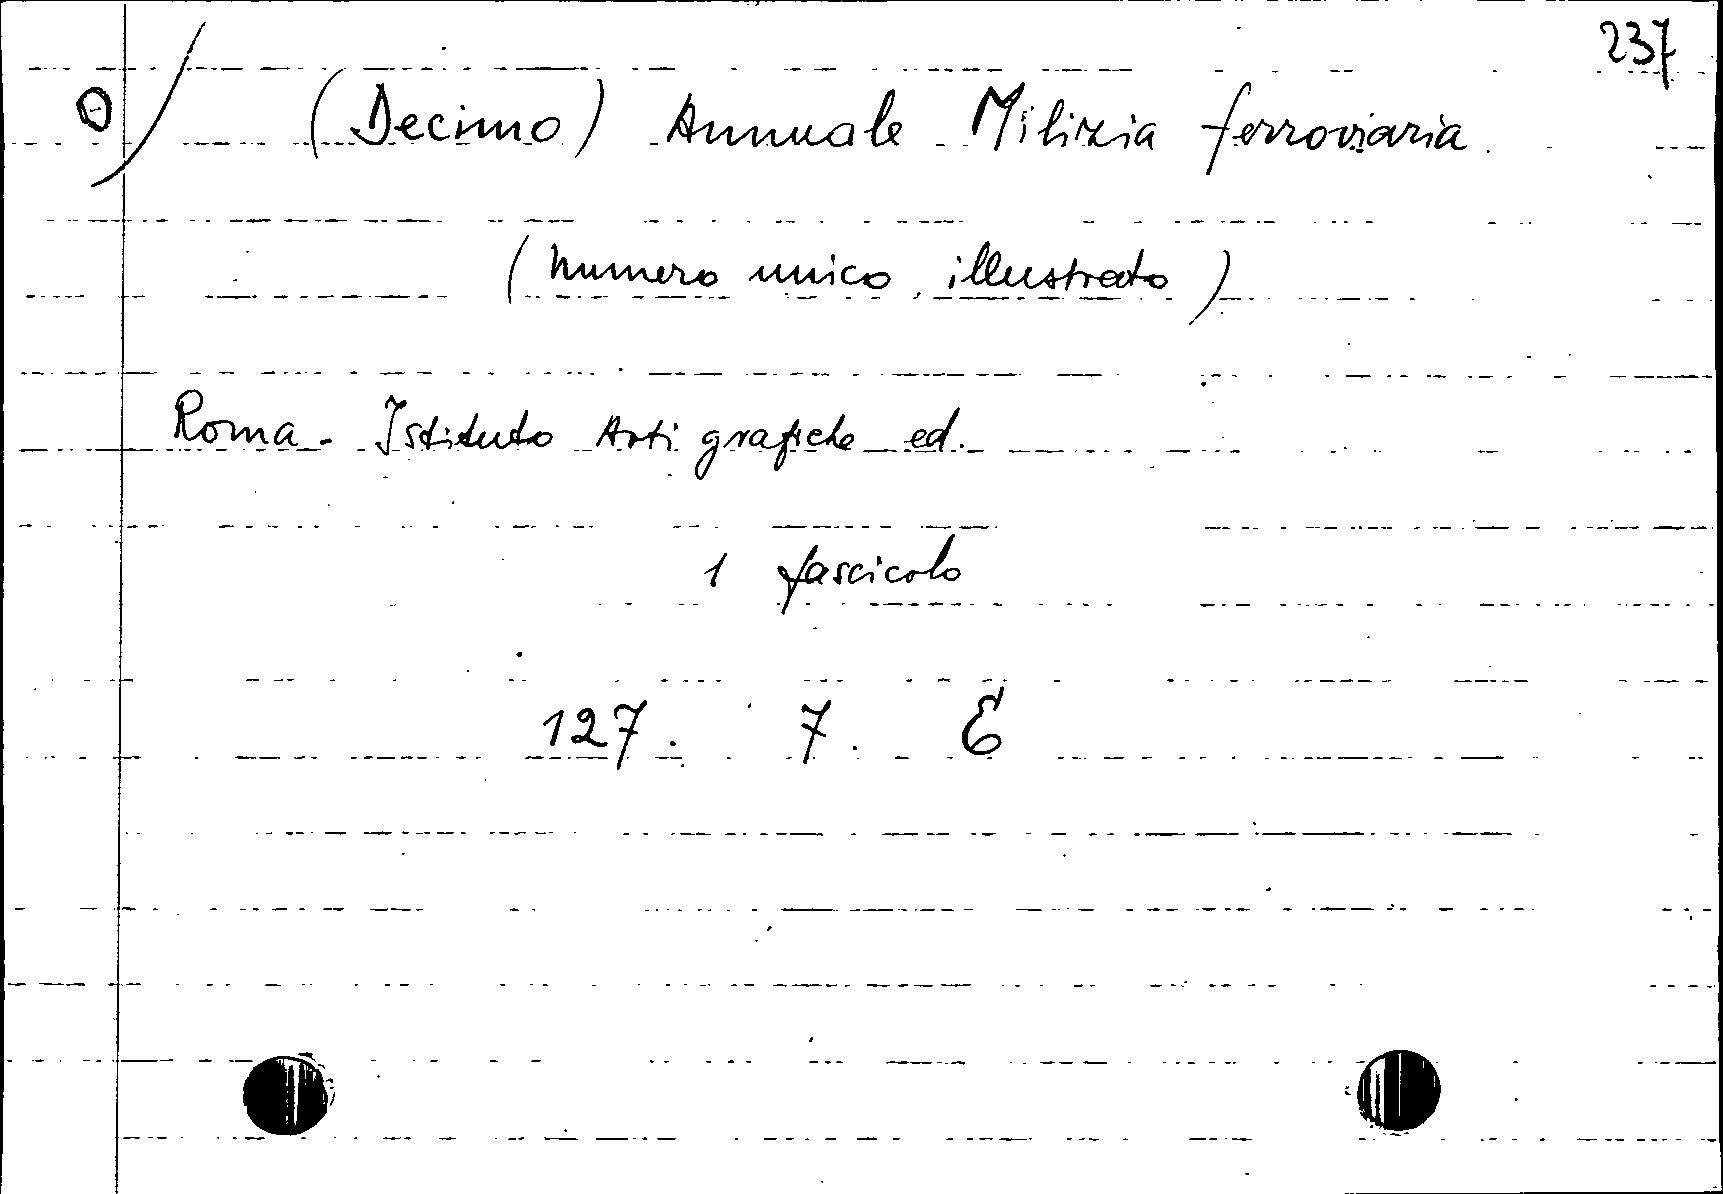 237
0/ (Decimo) Annuale Milizia ferroviaria
(numero unico, illustrato)
Roma - Istituto Arti grafiche ed.
1 fascicolo
127. 7. E